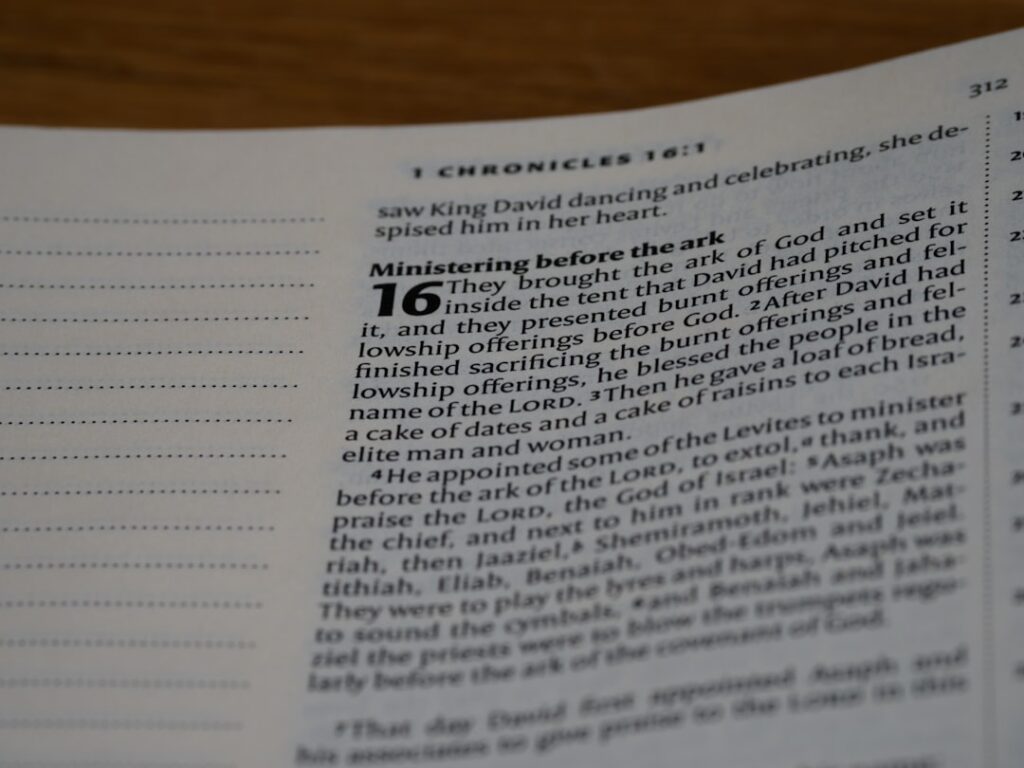 312
1 CHRONICLES 16:1
saw King David dancing and celebrating, she de-
spised him in her heart.
Ministering before the ark
16 They brought the ark of God and set it
inside the tent that David had pitched for
it, and they presented burnt offerings and fel-
lowship offerings before God. 2After David had
finished sacrificing the burnt offerings and fel-
lowship offerings, he blessed the people in the
name of the LORD. 3Then he gave a loaf of bread,
a cake of dates and a cake of raisins to each Isra-
elite man and woman.
4He appointed some of the Levites to minister
before the ark of the LORD, to extol,a thank, and
praise the LORD, the God of Israel: 5Asaph was
the chief, and next to him in rank were Zecha-
riah, then Jaaziel,b Shemiramoth, Jehiel, Mat-
tithiah, Eliab, Benaiah, Obed-Edom and Jeiel.
They were to play the lyres and harps, Asaph was
to sound the cymbals, 6and Benaiah and Jaha-
ziel the priests were to blow the trumpets regu-
larly before the ark of the covenant of God.
7That day David first appointed Asaph and
his associates to give praise to the LORD in this